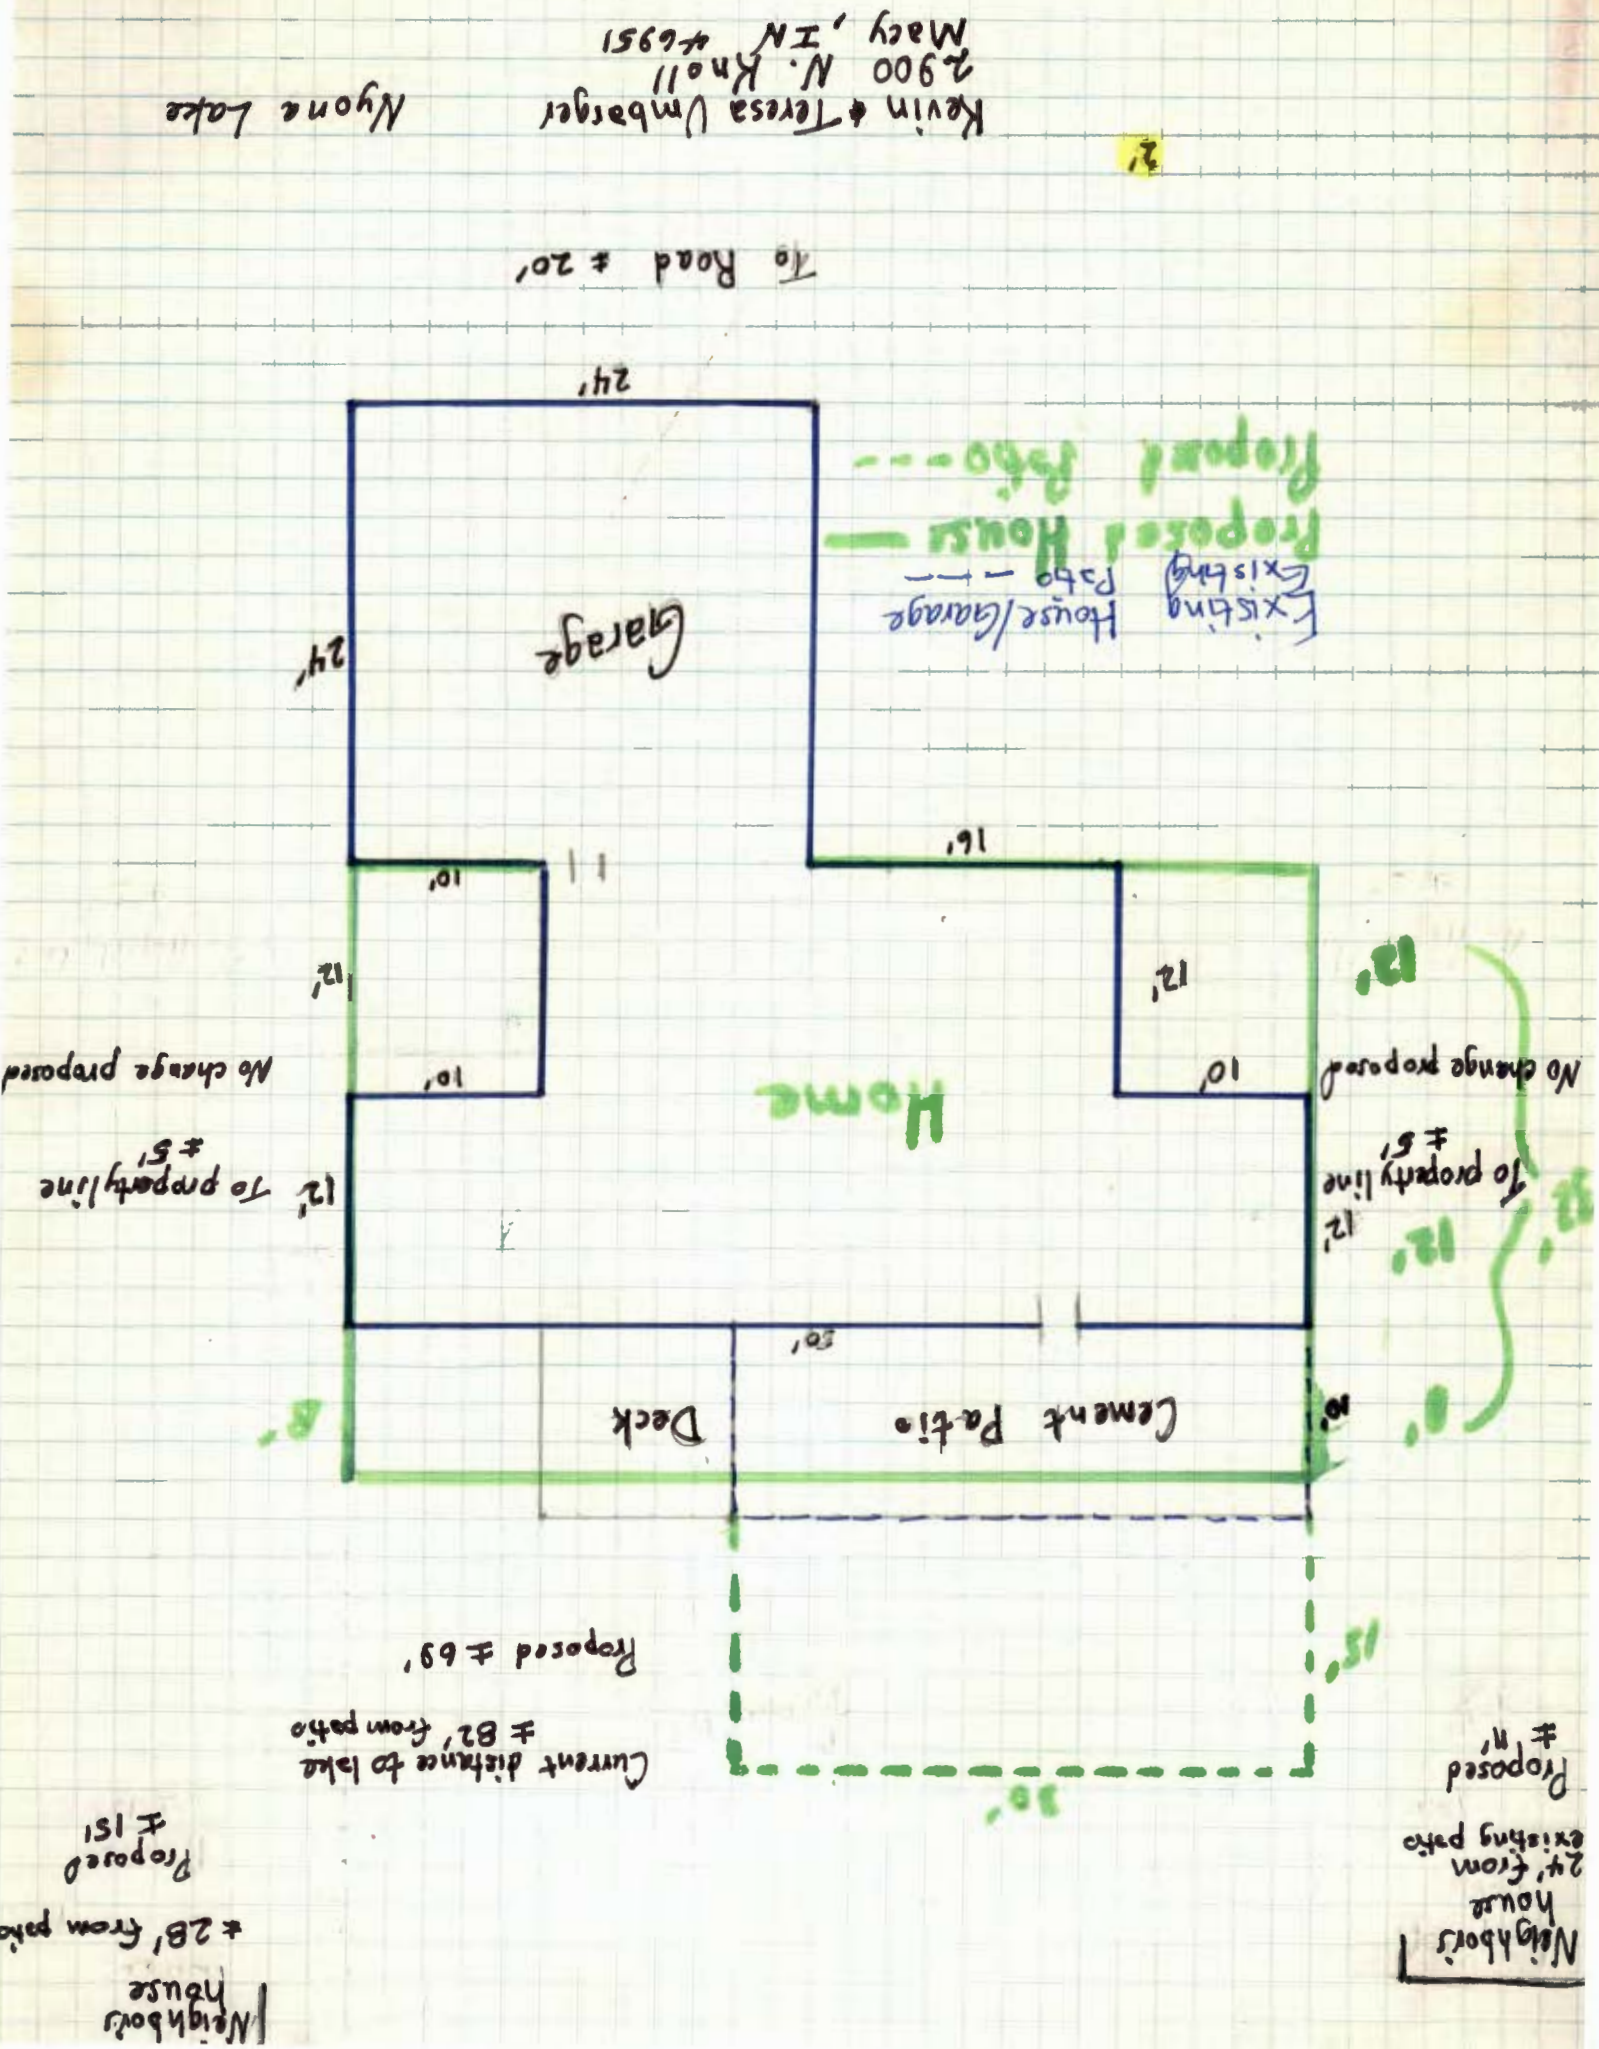 Neighbor's
house
24' from
existing patio
Proposed
± 11'
Neighbor's
house
± 28' from patio
Proposed
± 15'
30'
Current distance to lake
± 82' from patio
15'
Proposed ± 69'
8'
10'
Cement Patio
Deck
8'
50'
32'
12'
12'
To property line
± 5'
No change proposed
12'
To property line
± 5'
No change proposed
10'
Home
10'
12'
12'
12'
10'
16'
24'
Garage
Existing House/Garage
Existing Patio ---
Proposed House —
Proposed Patio ---
24'
To Road ± 20'
2'
Kevin & Teresa Umbarger
2900 N. Knoll
Macy, IN 46951
Nyona Lake